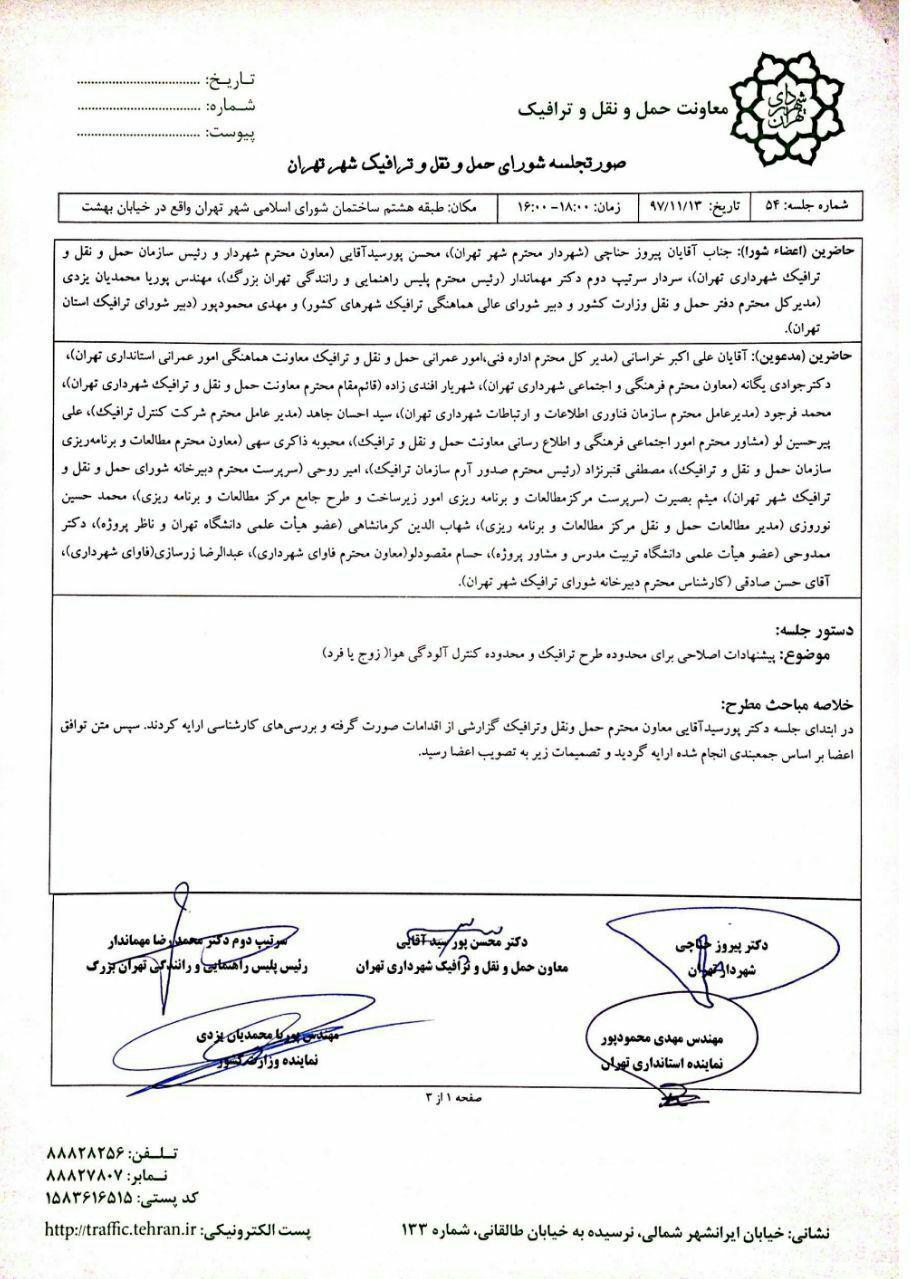 شهرداری تهران
معاونت حمل و نقل و ترافیک
تـاریـخ: ..................................
شمـاره: ..................................
پیوست: ..................................
صورتجلسه شورای حمل و نقل و ترافیک شهر تهران
شماره جلسه: ۵۴
تاریخ: ۹۷/۱۱/۱۳
زمان: ۱۸:۰۰- ۱۶:۰۰
مکان: طبقه هشتم ساختمان شورای اسلامی شهر تهران واقع در خیابان بهشت
حاضرین (اعضاء شورا): جناب آقایان پیروز حناچی (شهردار محترم شهر تهران)، محسن پورسیدآقایی (معاون محترم شهردار و رئیس سازمان حمل و نقل و
ترافیک شهرداری تهران)، سردار سرتیپ دوم دکتر مهماندار (رئیس محترم پلیس راهنمایی و رانندگی تهران بزرگ)، مهندس پوریا محمدیان یزدی
(مدیرکل محترم دفتر حمل و نقل وزارت کشور و دبیر شورای عالی هماهنگی ترافیک شهرهای کشور) و مهدی محمودپور (دبیر شورای ترافیک استان
تهران).
حاضرین (مدعوین): آقایان علی اکبر خراسانی (مدیر کل محترم اداره فنی،امور عمرانی حمل و نقل و ترافیک معاونت هماهنگی امور عمرانی استانداری تهران)،
دکترجوادی یگانه (معاون محترم فرهنگی و اجتماعی شهرداری تهران)، شهریار افندی زاده (قائم‌مقام محترم معاونت حمل و نقل و ترافیک شهرداری تهران)،
محمد فرجود (مدیرعامل محترم سازمان فناوری اطلاعات و ارتباطات شهرداری تهران)، سید احسان جاهد (مدیر عامل محترم شرکت کنترل ترافیک)، علی
پیرحسین لو (مشاور محترم امور اجتماعی فرهنگی و اطلاع رسانی معاونت حمل و نقل و ترافیک)، محبوبه ذاکری سهی (معاون محترم مطالعات و برنامه‌ریزی
سازمان حمل و نقل و ترافیک)، مصطفی قنبرنژاد (رئیس محترم صدور آرم سازمان ترافیک)، امیر روحی (سرپرست محترم دبیرخانه شورای حمل و نقل و
ترافیک شهر تهران)، میثم بصیرت (سرپرست مرکزمطالعات و برنامه ریزی امور زیرساخت و طرح جامع مرکز مطالعات و برنامه ریزی)، محمد حسین
نوروزی (مدیر مطالعات حمل و نقل مرکز مطالعات و برنامه ریزی)، شهاب الدین کرمانشاهی (عضو هیأت علمی دانشگاه تهران و ناظر پروژه)، دکتر
ممدوحی (عضو هیأت علمی دانشگاه تربیت مدرس و مشاور پروژه)، حسام مقصودلو(معاون محترم فاوای شهرداری)، عبدالرضا زرسازی(فاوای شهرداری)،
آقای حسن صادقی (کارشناس محترم دبیرخانه شورای ترافیک شهر تهران).
دستور جلسه:
موضوع: پیشنهادات اصلاحی برای محدوده طرح ترافیک و محدوده کنترل آلودگی هوا( زوج یا فرد)
خلاصه مباحث مطرح:
در ابتدای جلسه دکتر پورسیدآقایی معاون محترم حمل ونقل وترافیک گزارشی از اقدامات صورت گرفته و بررسی‌های کارشناسی ارایه کردند. سپس متن توافق
اعضا بر اساس جمعبندی انجام شده ارایه گردید و تصمیمات زیر به تصویب اعضا رسید.
دکتر پیروز حناچی
شهردار تهران
دکتر محسن پور سید آقایی
معاون حمل و نقل و ترافیک شهرداری تهران
سرتیپ دوم دکتر محمدرضا مهماندار
رئیس پلیس راهنمایی و رانندگی تهران بزرگ
مهندس مهدی محمودپور
نماینده استانداری تهران
مهندس پوریا محمدیان یزدی
نماینده وزارت کشور
صفحه ۱ از ۳
تـلـفن: ۸۸۸۲۸۲۵۶
نمـابر: ۸۸۸۲۷۸۰۷
کد پستی: ۱۵۸۳۶۱۶۵۱۵
نشانی: خیابان ایرانشهر شمالی، نرسیده به خیابان طالقانی، شماره ۱۳۳
پست الکترونیکی: http://traffic.tehran.ir